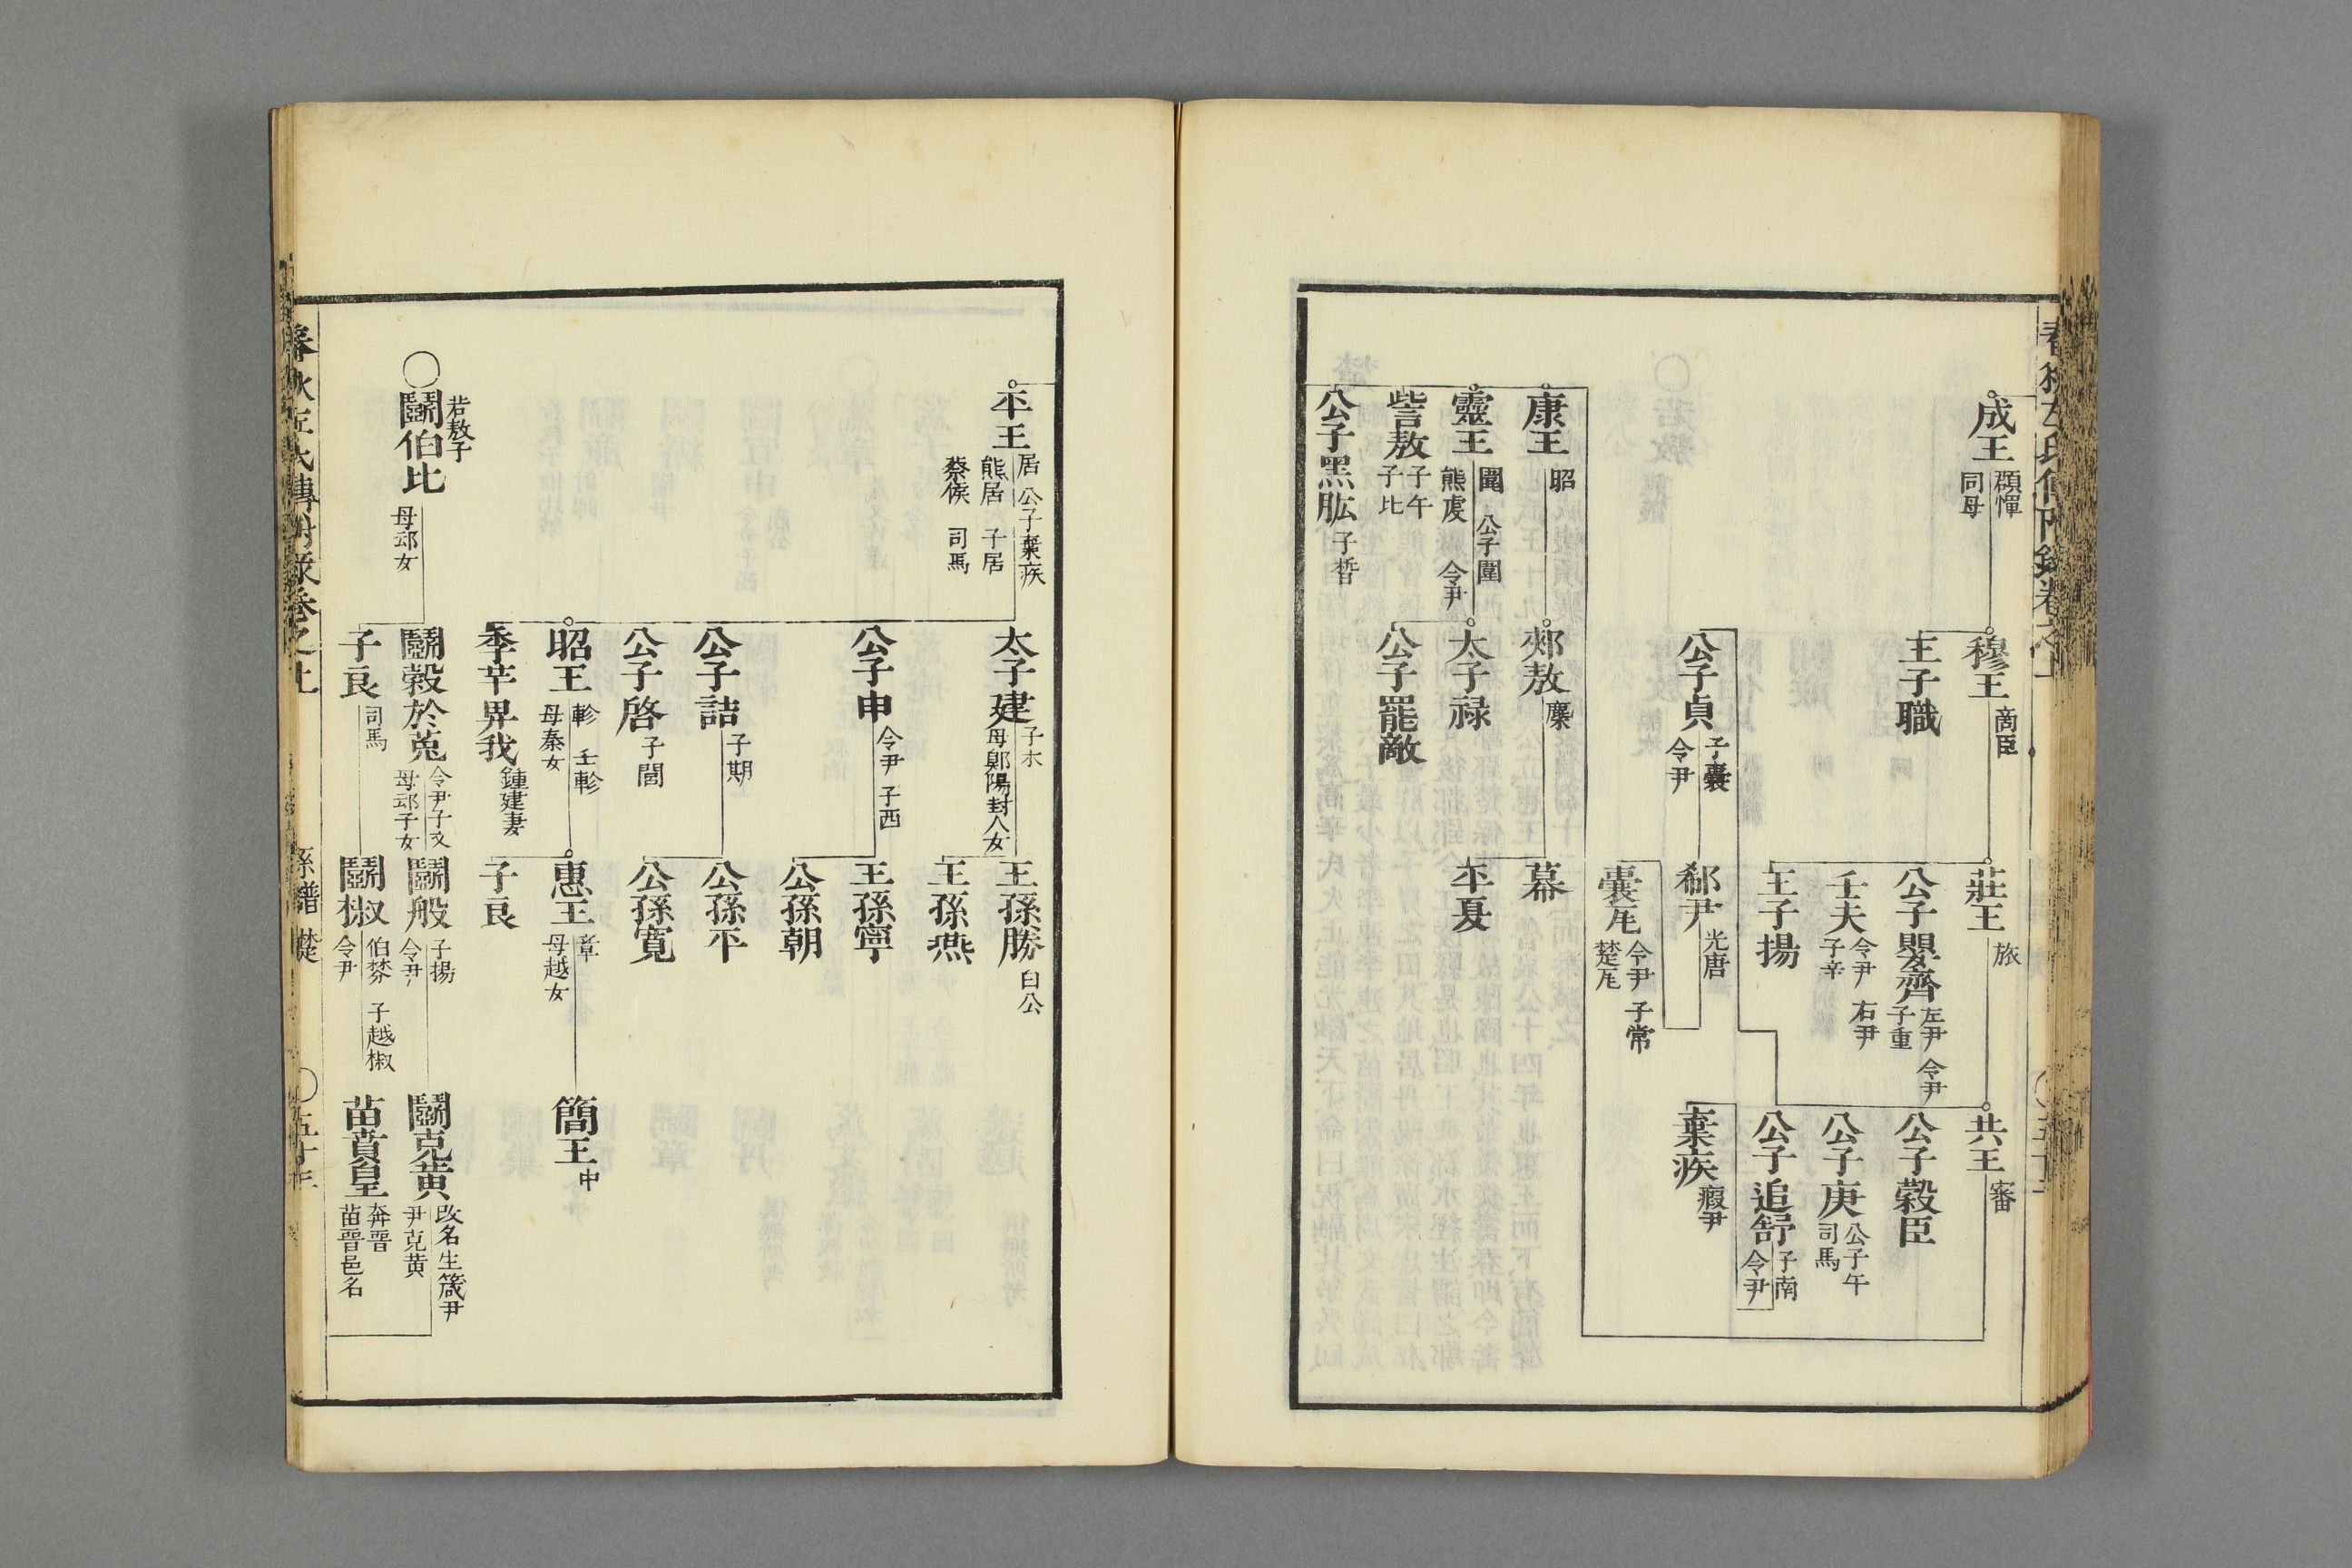 春秋左氏傳附錄卷之上
成王
頵惲
同母
穆王
商臣
王子職
莊王
旅
公子嬰齊
左尹 令尹
子重
壬夫
令尹 右尹
子辛
王子揚
共王
審
公子穀臣
公子庚
公子午
司馬
公子追舒
子南
令尹
棄疾
瘕尹
公子貞
子囊
令尹
郗尹
光唐
囊瓦
令尹 子常
楚瓦
康王
昭
郟敖
麇
幕
平夏
靈王
圍 公子圍
熊虔 令尹
太子祿
公子罷敵
訾敖
子午
子比
公子黑肱
子晳
平王
居 公子棄疾
熊居 子居
蔡侯 司馬
太子建
子木
母郹陽封人女
王孫勝
白公
王孫燕
公子申
令尹 子西
王孫寧
公孫朝
公子詰
子期
公孫平
公孫寬
公子啓
子閭
昭王
軫 壬軫
母秦女
惠王
章
母越女
簡王
中
子良
季芊畀我
鍾建妻
〇鬬伯比
若敖子
母䢵女
鬬穀於菟
令尹子文
母䢵子女
鬬般
子揚
令尹
鬬克黃
改名生箴尹
尹克黃
子良
司馬
鬬椒
伯棼 子越椒
令尹
苗賁皇
奔晉
苗晉邑名
春秋左氏傳附錄卷之上
系譜 楚